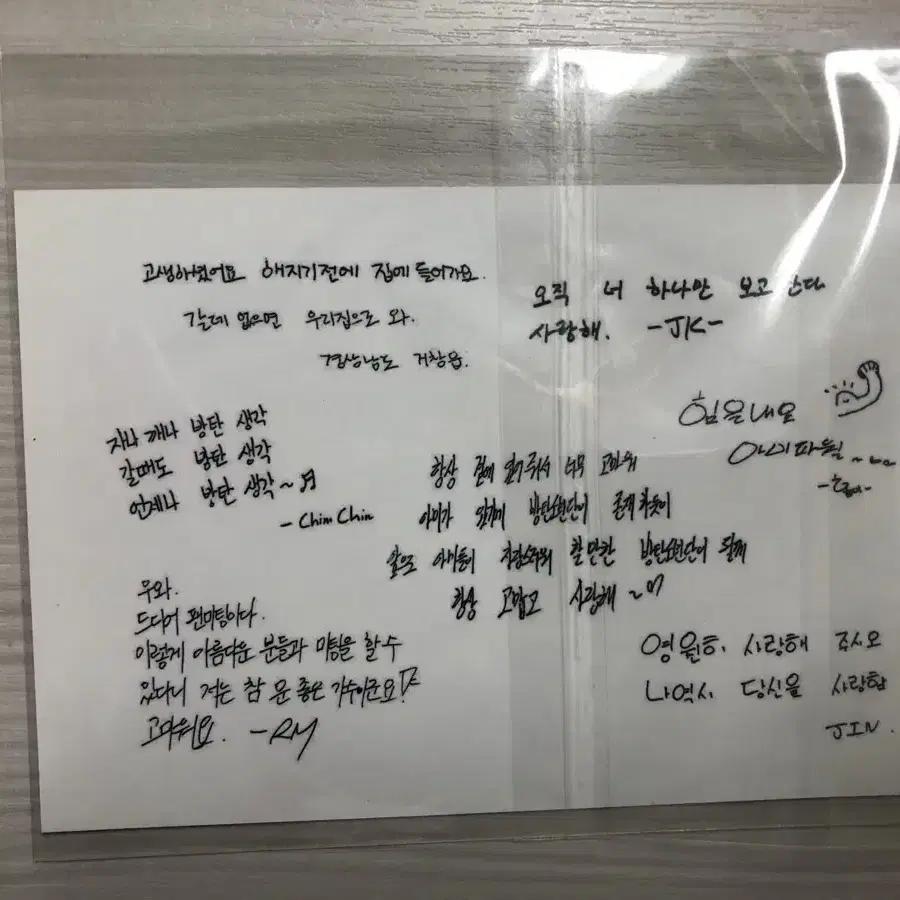 고생하셨어요 해지기전에 집에 들어가요.
갈데 없으면 우리집으로 와.
경상남도 거창읍.
오직 너 하나만 보고 산다
사랑해. -JK-
힘을내요
파월~
지나 깨나 방탄 생각
갈때도 방탄 생각
언제나 방탄 생각~♬
- Chim Chim
항상 곁에 있어줘서 너무 고마워
아미가 있기에 방탄소년단이 존재하듯이
앞으로 아미들이 자랑스러워 할만한 방탄소년단이 될께
항상 고맙고 사랑해~
우와.
드디어 팬미팅이다.
이렇게 아름다운 분들과 미팅을 할수
있다니 저는 참 운 좋은 가수이군요!
고마워요. -RM
영원히 사랑해 주시오
나역시 당신을 사랑함
JIN.